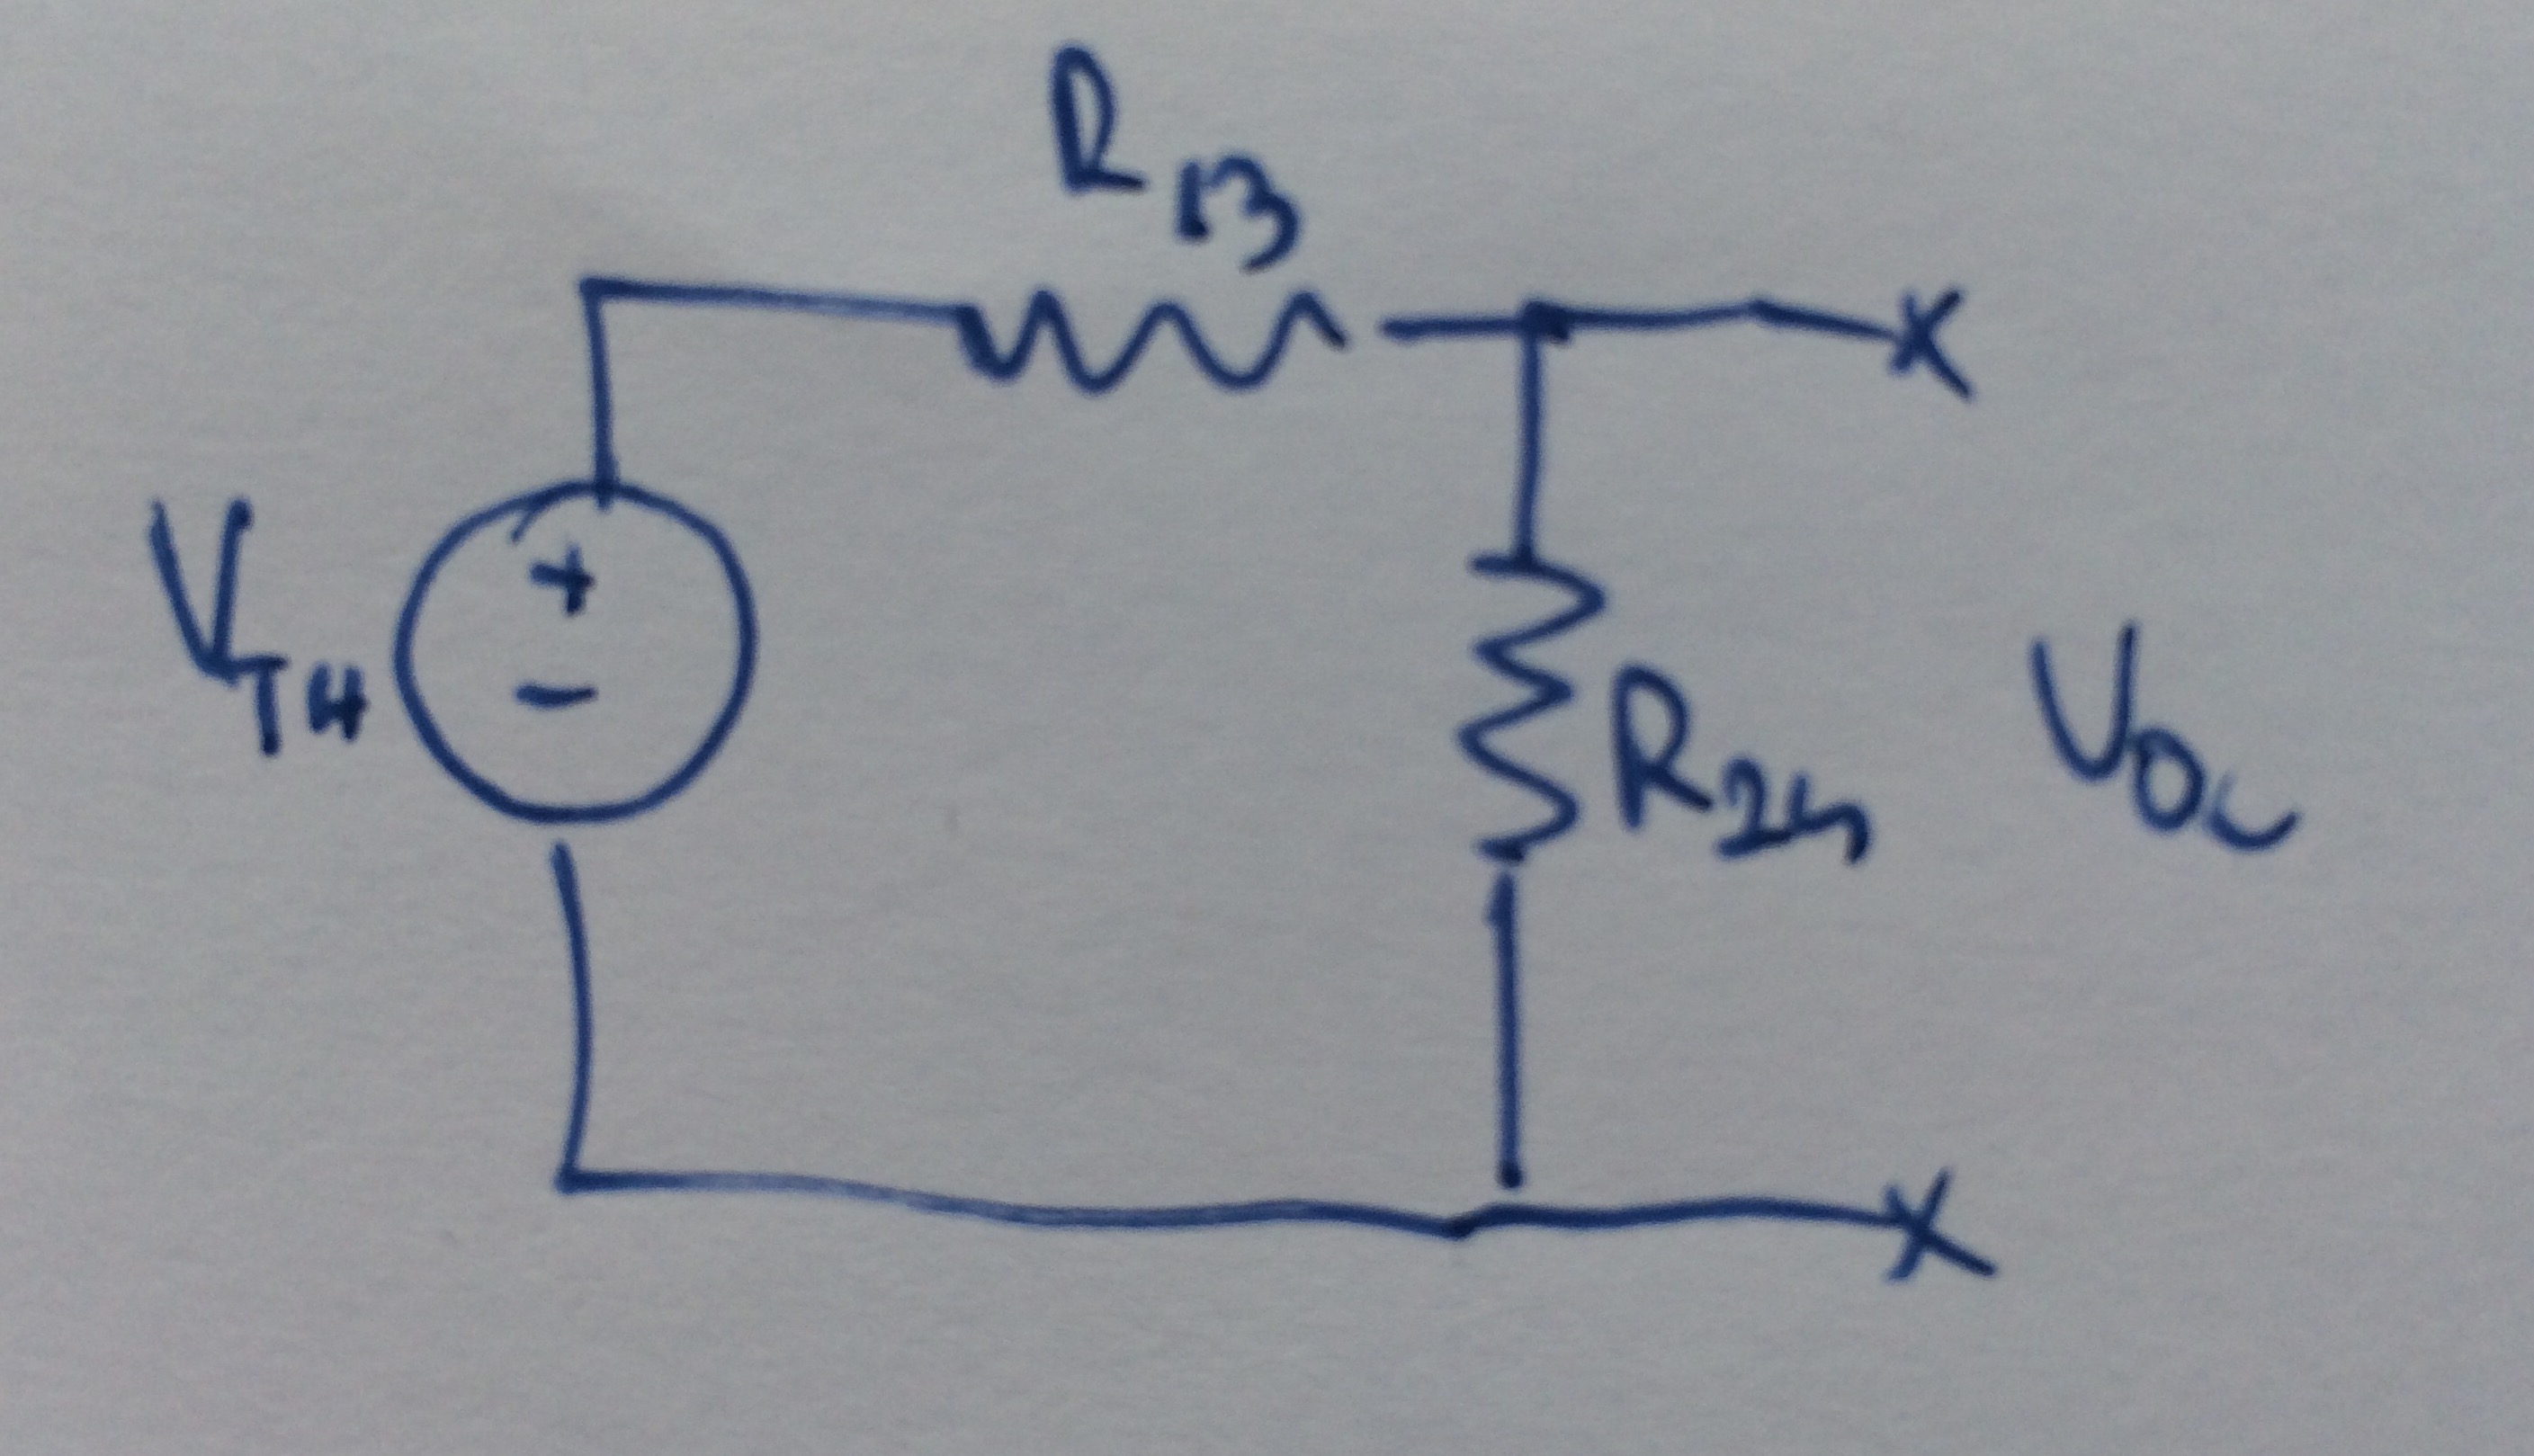 R13
+
-
VTH
R24
VOC